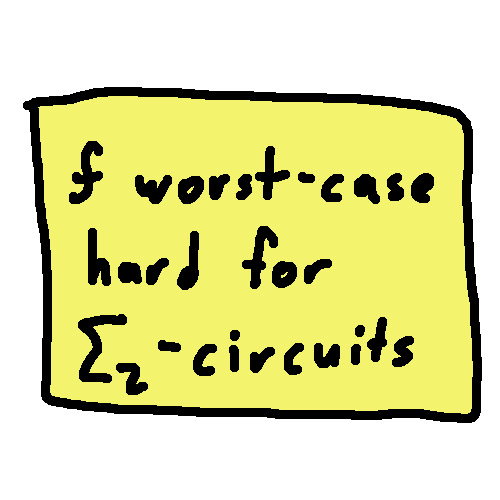 f worst-case
hard for
Σ₂-circuits